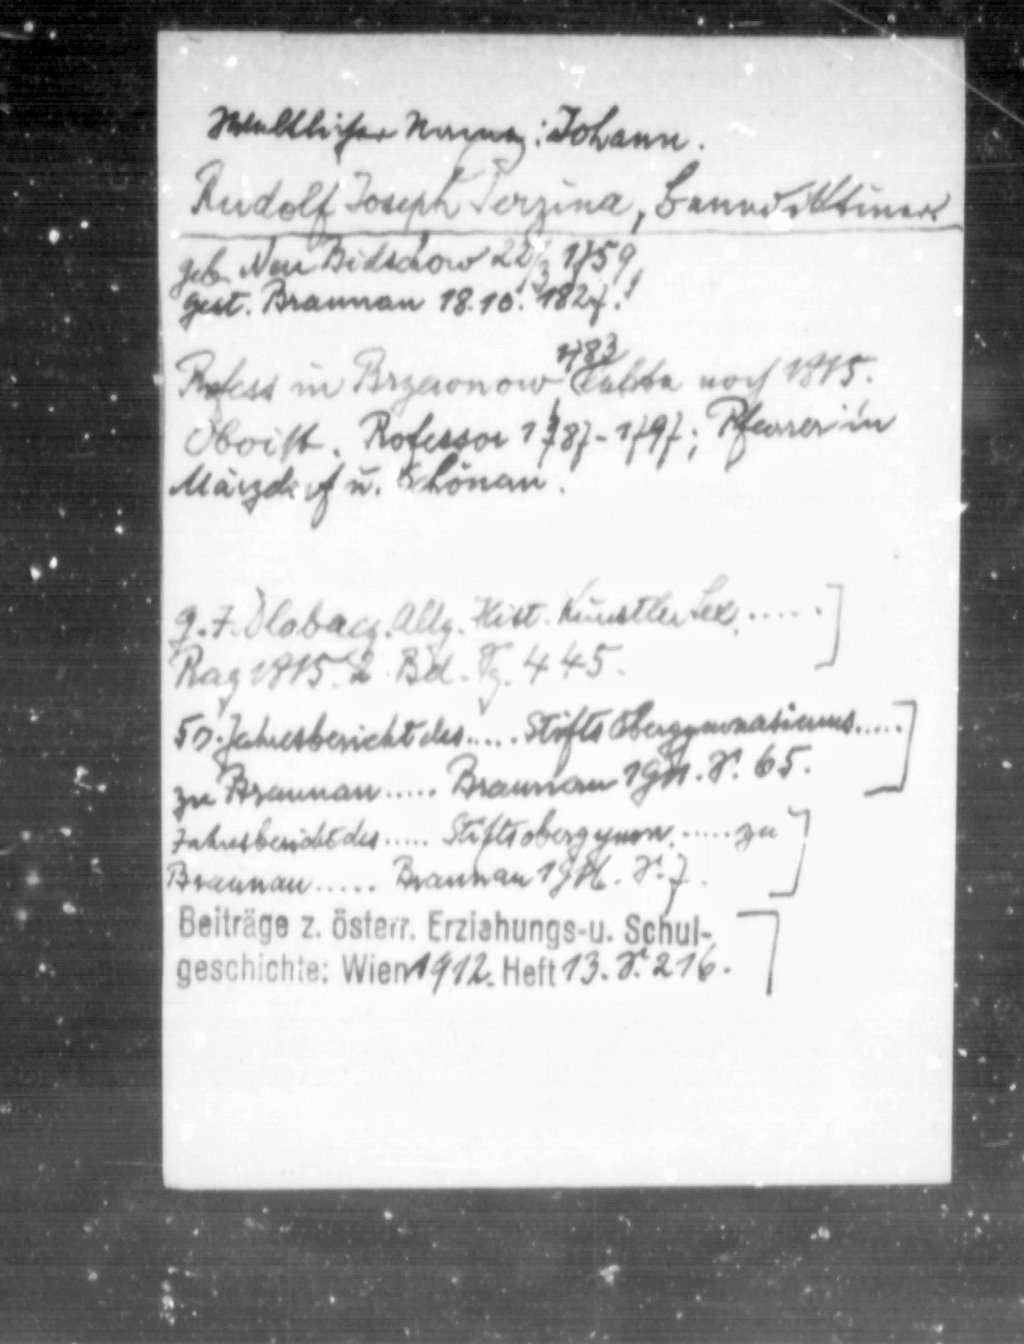 Weltlicher Name: Johann.
Rudolf Joseph Terzina, Benediktiner
geb. Neu Bidschow 22/3 1759,
gest. Braunau 18.10. 1827.!
1783
Profess in Brzewnow lebte noch 1815.
Oboist. Professor 1787-1797; Pfarrer in
Märzdorf u. Schönau.
G. J. Dlabacz. Allg. Hist. Künstler Lex. ..... ]
Prag 1815. 2. Bd. S. 445.
50. Jahresbericht des ..... Stifts Obergymnasiums ..... ]
zu Braunau ..... Braunau 1911. S. 65.
Jahresbericht des ..... Stiftsobergymn. ..... zu ]
Braunau ..... Braunau 1916. S. 7.
Beiträge z. österr. Erziehungs-u. Schul- ]
geschichte: Wien 1912. Heft 13. S. 216.